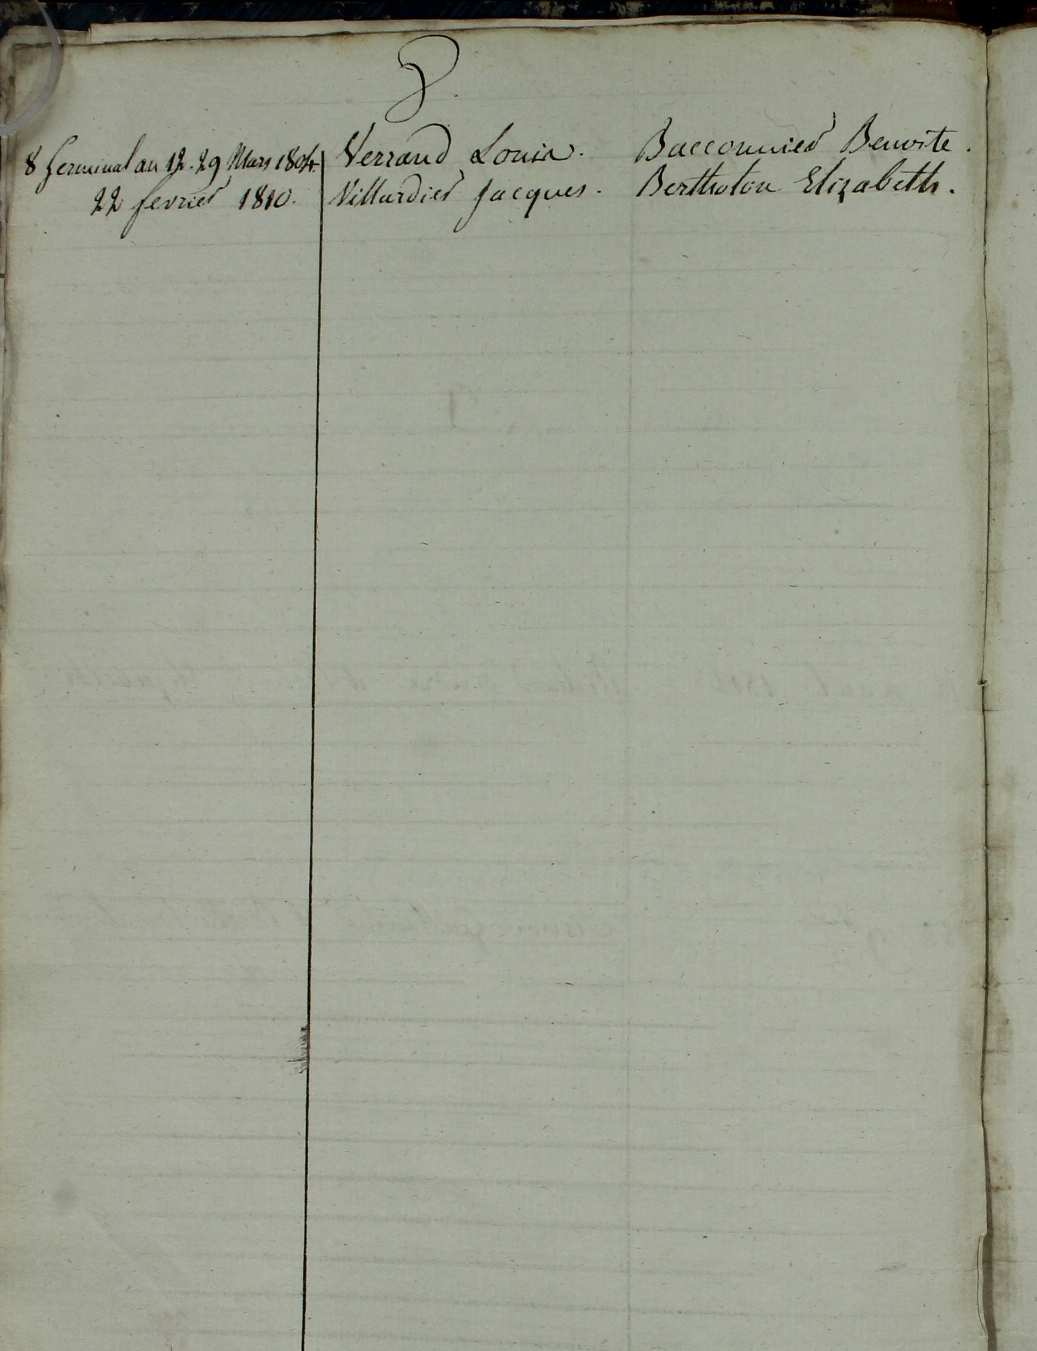 V.
8 Germinal an 12. 29 Mars 1804. Verrand Louis. Bacconnier Benoite.
22 fevrier 1810. Villardier Jacques. Bertholon Elizabeth.